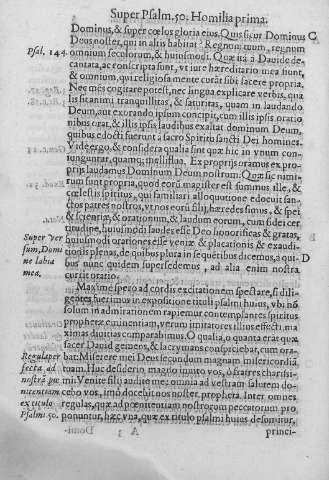 Super Psalm. 50. Homilia prima.
Dominus, & super cœlos gloria eius. Quis sicut Dominus C
Deus noster, qui in altis habitat? Regnum tuum, regnum
Psal. 144. omnium sęculorum, & huiusmodi. Quæ ita à Dauide de-
cantata, ac conscripta sunt, vt iure hæreditario mea sint,
& omnium, qui religiosa mente curāt sibi facere propria.
Nec mēs cogitare potest, nec lingua explicare verbis, qua
lis sit animi tranquillitas, & saturitas, quam in laudando
Deum, aut exorando ipsum concipit, cum illis ipsis oratio
nibus orat, & illis ipsis laudibus exaltat dominum Deum,
quibus edocti fuerunt à sacro Spiritu sancti Dei homines.
Vide ergo, & considera qualia sint quæ hic in vnum con-
iunguntur, quamq; melliflua. Ex proprijs oramus ex pro-
prijs laudamus Dominum Deum nostrum. Quæ sic nimi-
rum sunt propria, quod eorū magister est summus ille, &
cœlestis spiritus, qui familiari alloquutione edocuit san-
ctos patres nostros, vt nos eorū filij, hæredes simus, & spei
& scientię, & orationum, & laudum eorum, cum sidei cer
titudine, huiusmodi laudes esse Deo honorificas & gratas,
Super ver huiusmodi orationes esse veniæ & placationis & exaudi-
sum, Domi tionis plenas, de quibus plura in sequētibus dicemus, à qui- D
ne labia bus nunc quidem supersedemus, ad alia enim nostra
mea. currit oratio.
Maxime spero ad cordis excitationem spectare, si dili-
gentes fuerimus in expositione tituli psalmi huius, vbi nō
solum in admirationem rapiemur contemplantes spiritus
prophetæ eminentiam, verum imitatores illius effecti, ma
ximas diuitias comparabimus. O qualia, o quanta erāt quæ
facer Dauid gemens, & lacrymans conspiciebat, cum ora-
Regula per bat: Miserere mei Deus secundum magnam misericordiā
fecta, ad tuam. Huc desiderio magno inuito vos, ô fratres charissi-
nostrā pœ mi: Venite filij audite me: omnia ad vestram salutem do-
nitentiam cebo vos, imò docebit nos noster, propheta. Inter omnes
ex titulo regulas, quæ ad pœnitentiam nostrorum peccatorum pro
Psalmi 50. ponuntur, hæc vna, quæ ex titulo psalmi huius desumitur,
A 3 princi-